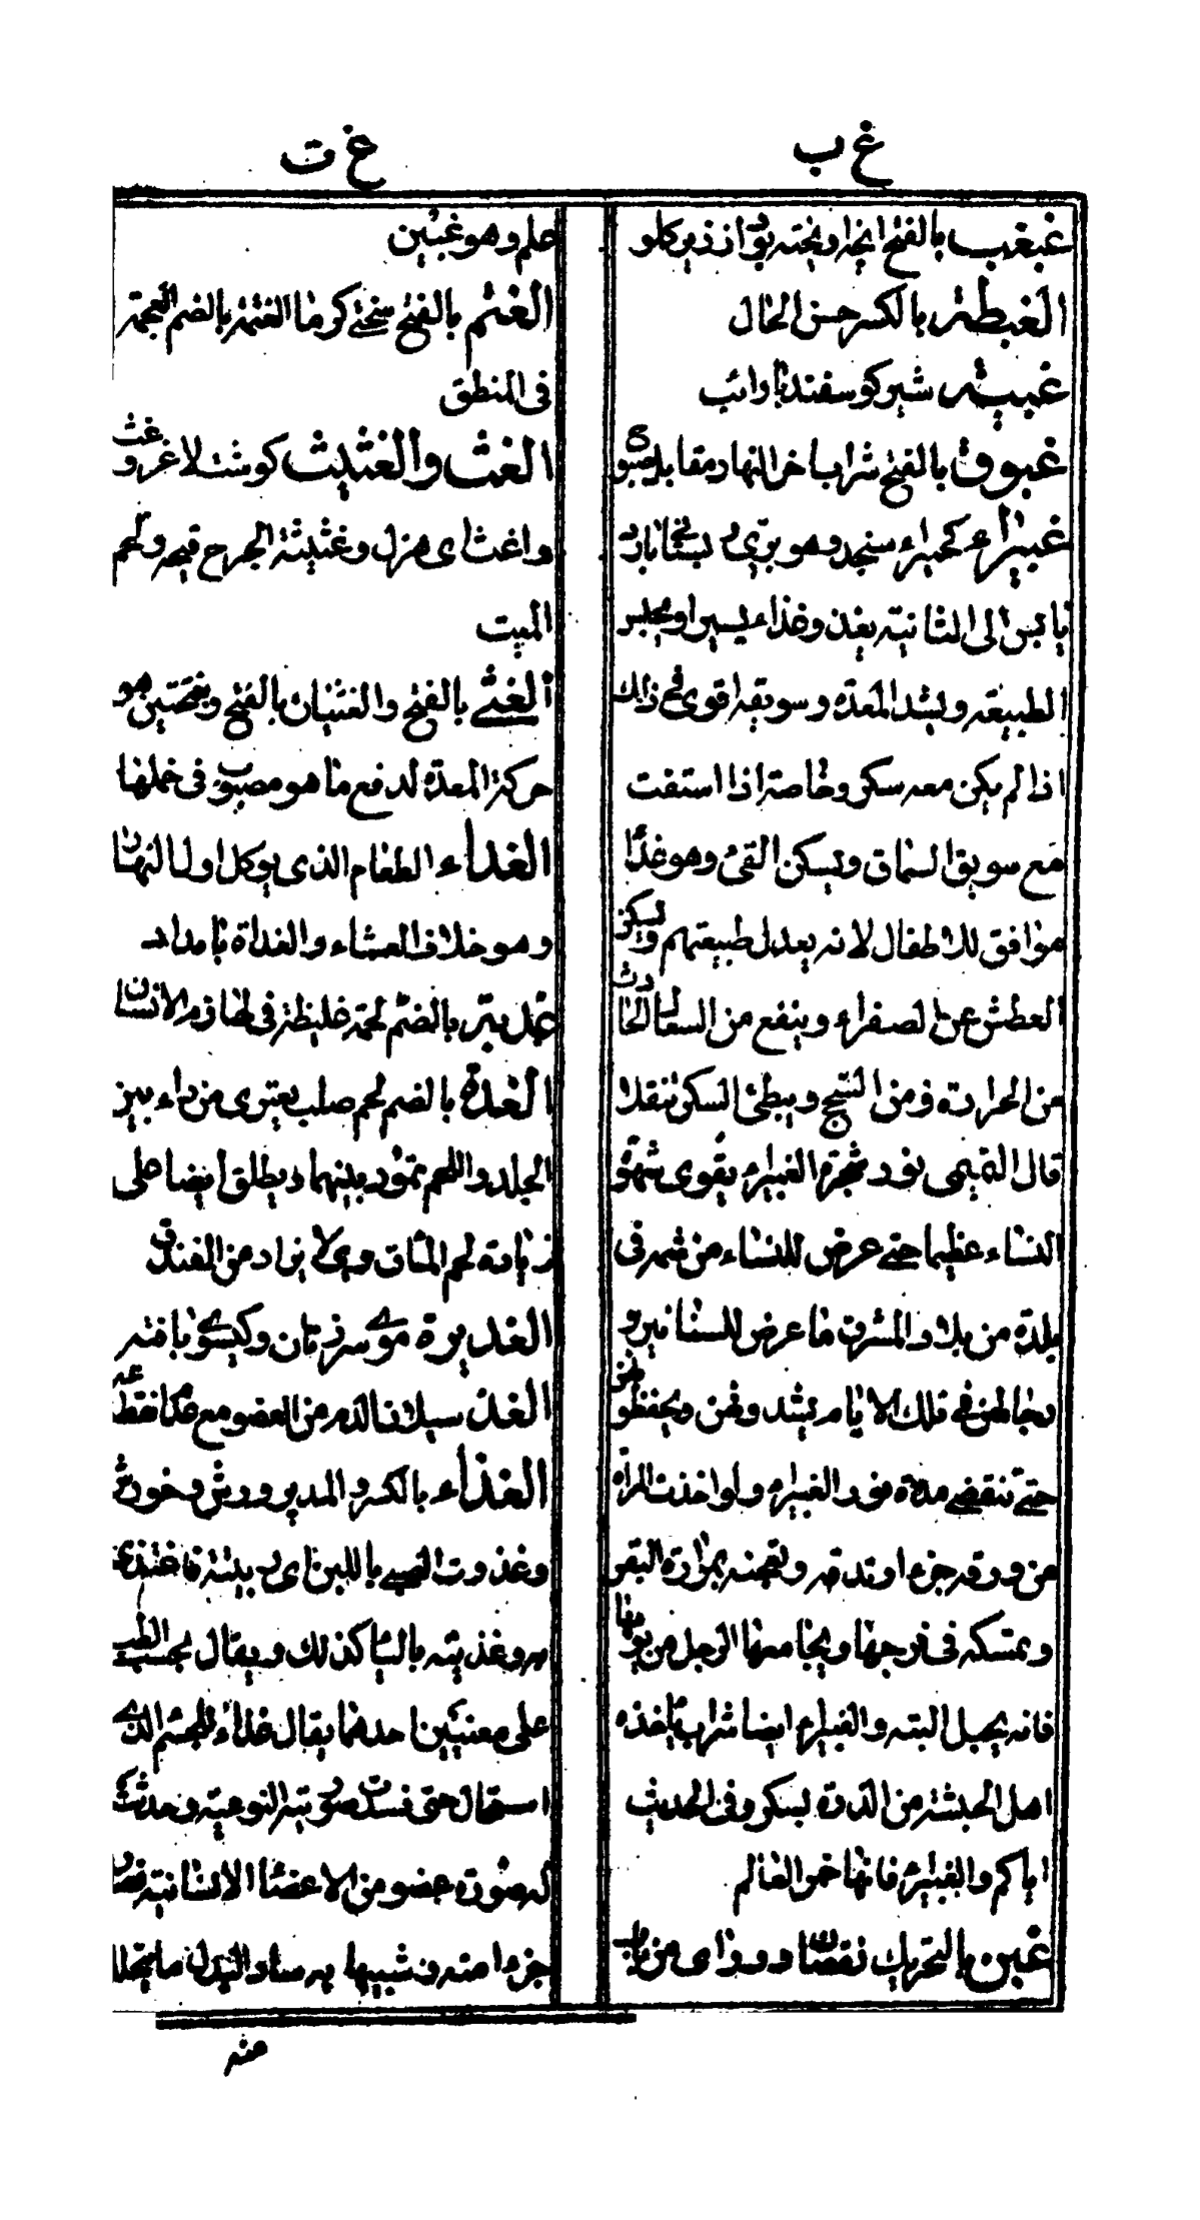 غ ب
غبغب بالفتح انچه اويخته بود از زير كلو
الغبطة بالكسر حسن الحال
غبيثه شير كوسفند با رائب
غبوق بالفتح شراب اخر النهار مقابل صبوح
غبيراء كحميراء سنجد وهو برّى و بستانى بارد
يابس الى الثانية يغذو غذاء يسيرا ويحبس
الطبيعة ويشد المعدة وسويقه اقوى فى ذلك
اذا لم يكن معه سكر وخاصة اذا استفت
مع سويق السماق ويسكن القئ وهو غذا
موافق للاطفال لانه يعدل طبيعتهم ويسكن
العطش عن الصفراء وينفع من السعال الحادث
من الحرارة ومن السّحج ويبطئ السكر تنقلا
قال التميمى نور شجرة الغبيراء يقوى شهوة
النساء عظيما حتى عرض للنساء من شمه فى
بلدة من بلاد المشرق ما عرض للسنانير و
رجالهن فى تلك الايام يشدونهن ويحفظونهن
حتى تنقضى مدة نور الغبيراء ولو اخذت المرأة
من ورقه جزءا وتدقه وتعجنه بمرارة البقر
وتمسكه فى فرجها ويجامعها الرجل من يومها
فانه يحبل البتة والغبيراء ايضا شراب يأخذه
اهل الحبشة من الذرة يسكر وفى الحديث
اياكم والغبيراء فانها خمر العالم
غبن بالتحريك نقصان در راى من باب
غ ت
علم وهو غبين
الغتم بالفتح سختى كرما الغتمة بالضم العجمة
فى المنطق
الغث والغثيث كوشت لاغر وغث
واغث اى هزل وغثيثة الجرح قيحه ولحم
الميت
الغثى بالفتح والغثيان بالفتح وبفتحتين هو
حركة المعدة لدفع ما هو مصبوب فى خملها
الغداء الطعام الذى يوكل اول النهار
وهو خلاف العشاء والغداة بامداد
غدبة بالضم لحمة غليظة فى لهازم الانسان
الغدة بالضم لحم صلب يعترى من داء بين
الجلد واللحم تمور بينهما ويطلق ايضا على
زيادة لحم الماق وهى لا يزاد من الفندق
الغديرة موى سر زنان و كيسو بافته
الغذ سيلان الدم من العضو مع عدم انقطاعه
الغذاء بالكسر والمد پرورش وخورش
وغذوت الصبى باللبن اى ربيته فاغتذى
به وغذيته بالتشديد كذلك ويقال بحسب الطب
على معنيين احدهما يقال غذاء للجسم الذى
استحال حتى فسدت صورته النوعية وحدثت
له صورة عضو من الاعضاء الانسانية فصار
جزءا منه وشبيها به سادا لبدل ما يتحلل
منه